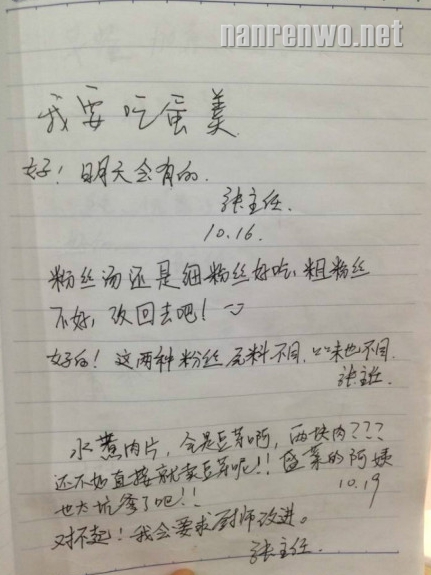 nanrenwo.net
我要吃蛋羹
好！明天会有的.
张主任.
10.16.
粉丝汤还是细粉丝好吃、粗粉丝
不好，改回去吧！
好的！这两种粉丝原料不同.口味也不同.
张主任.
水煮肉片，全是豆芽啊，两块肉???
还不如直接就卖豆芽呢!! 盛菜的阿姨
也太坑爹了吧!!
10.19
对不起！我会要求厨师改进。
张主任.